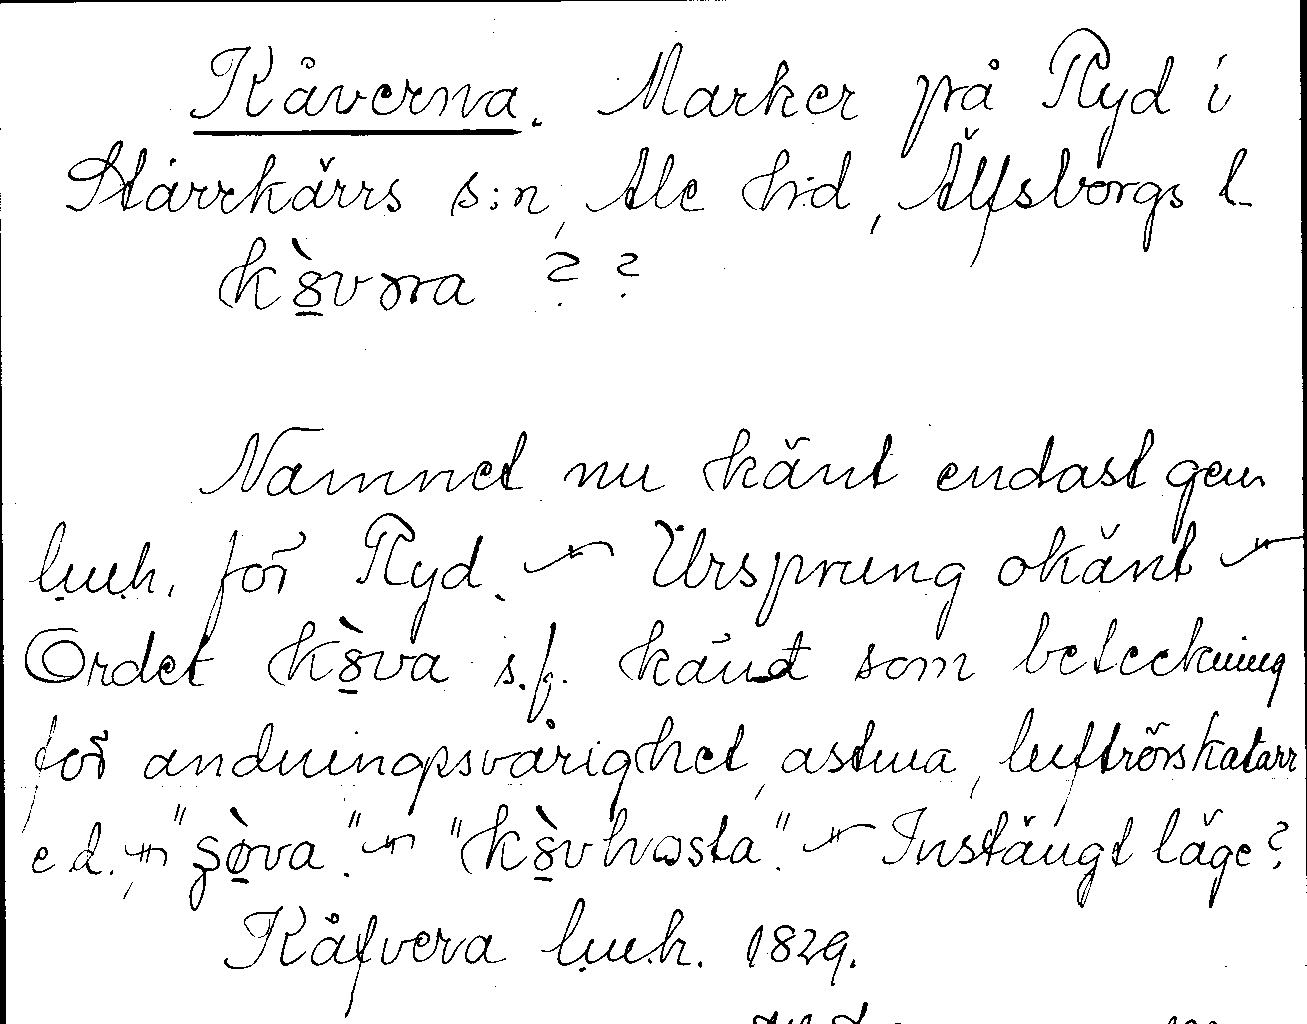 Kåverna. Marker på Ryd i
Stärrkärrs s:n, Ale hd, Älfsborgs l
Namnet nu känt endast gm
lm.h. för Ryd. – Ursprung okänt –
Ordet s.f. känt som beteckning
för andningsvårighet, astma, luftrörskatarr
e d. – Instängt läge?
Kåfvera lm.h. 1829.